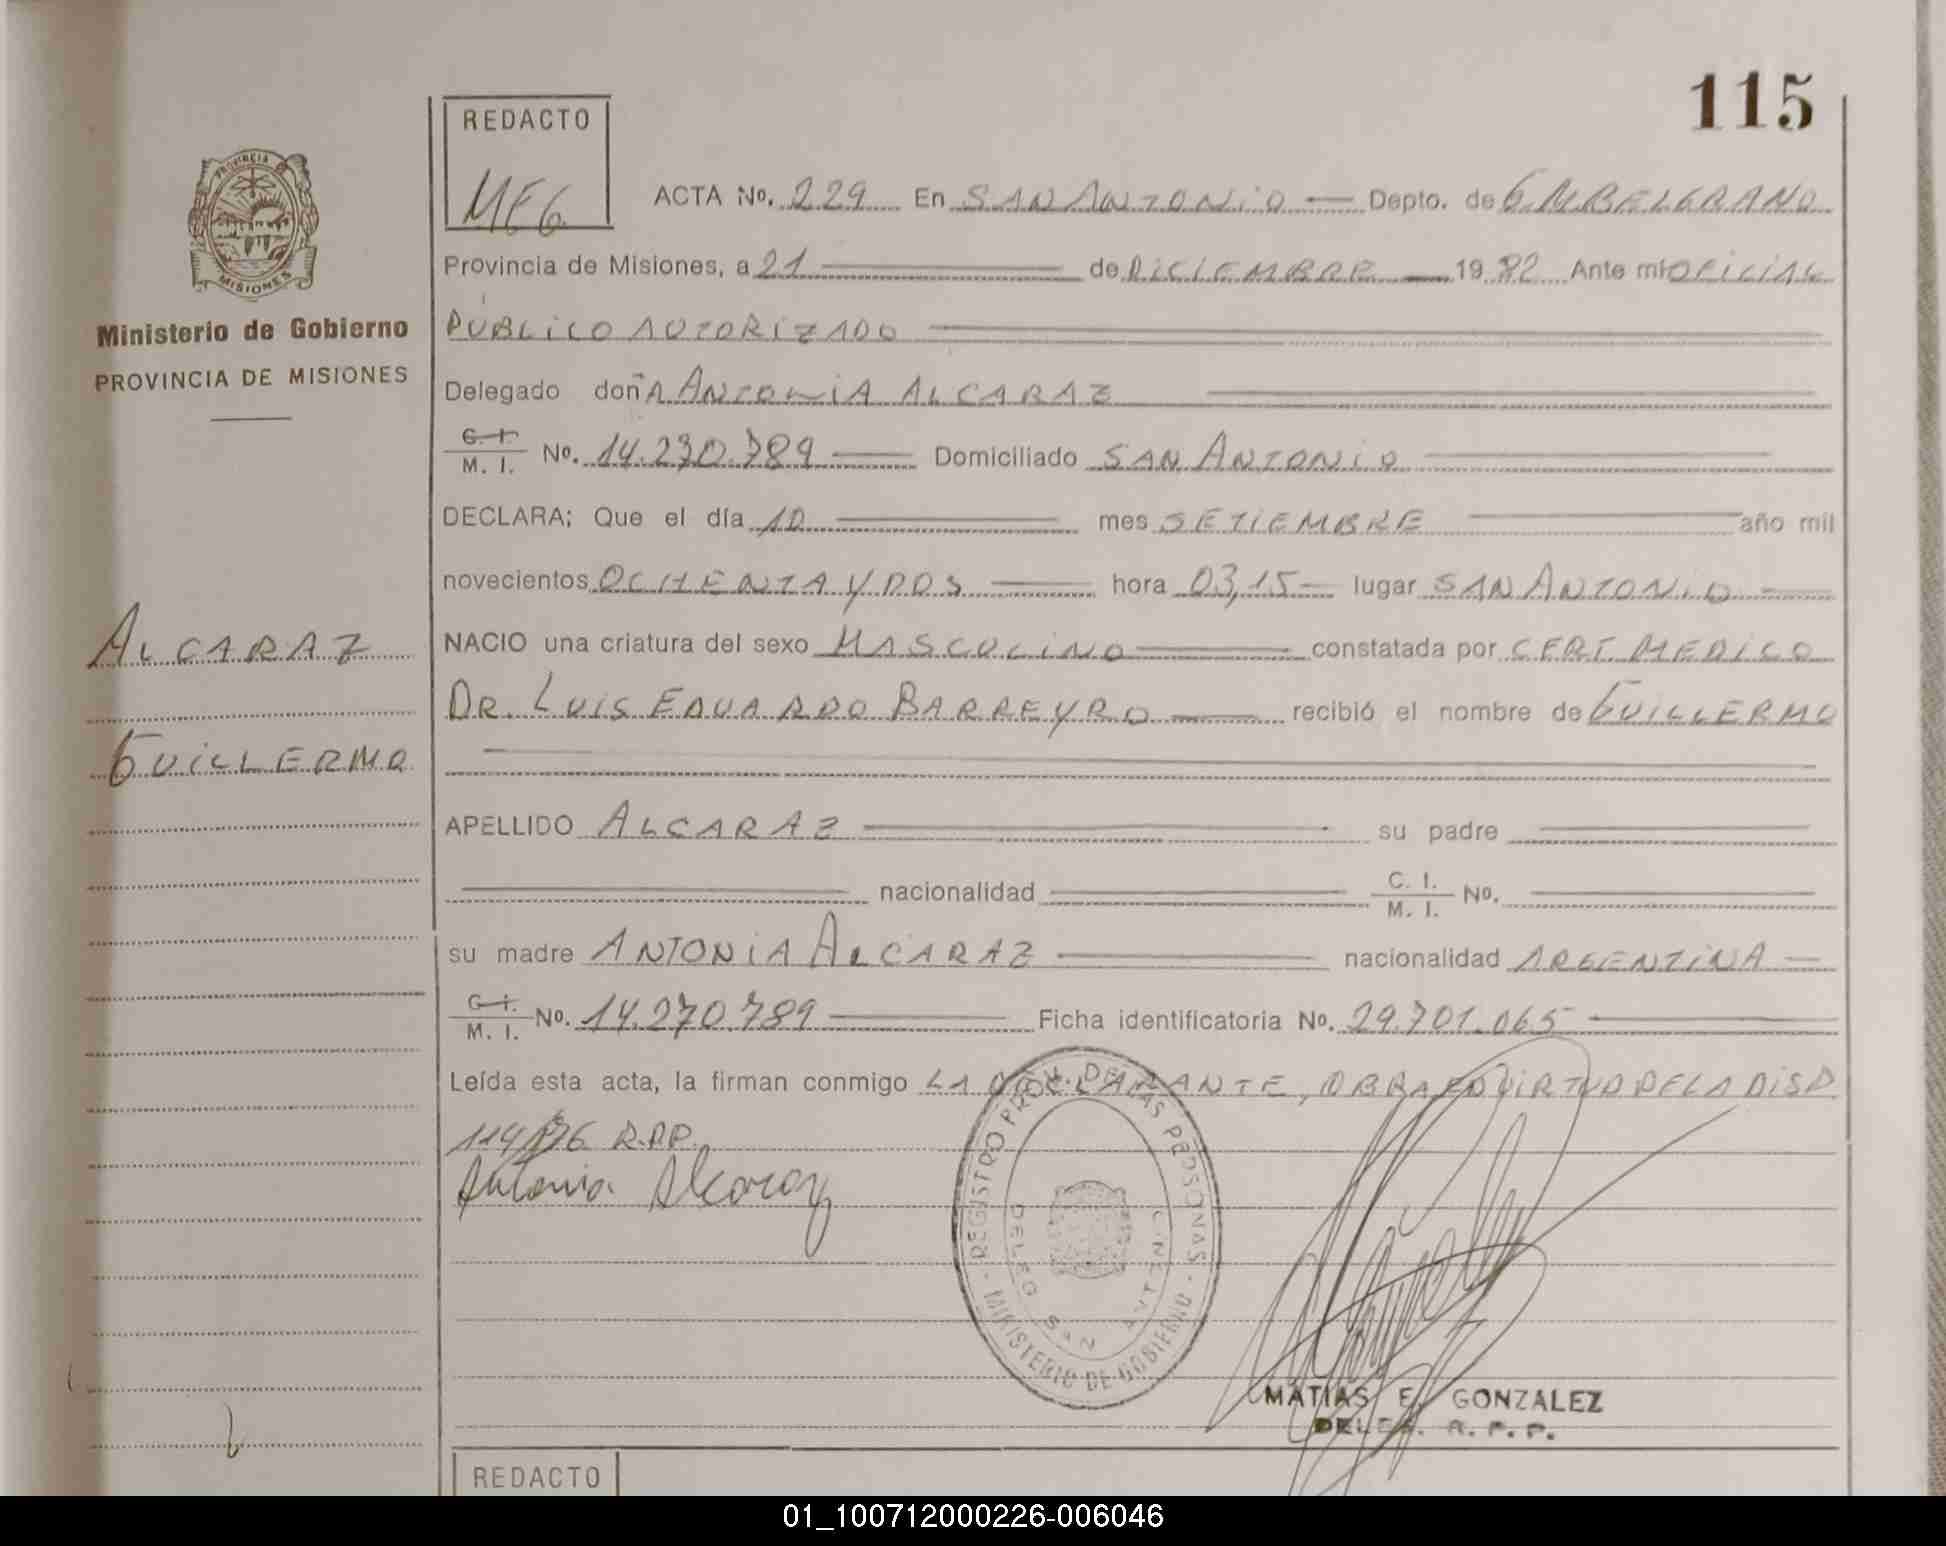 115
REDACTO
MEG
PROVINCIA DE MISIONES
Ministerio de Gobierno
PROVINCIA DE MISIONES
ACTA No. 229 En SAN ANTONIO — Depto. de G. M. BELGRANO
Provincia de Misiones, a 21 — de DICIEMBRE — 1982 Ante mi OFICIAL
PÚBLICO AUTORIZADO
Delegado doñA ANTONIA ALCARAZ
C. I. M. I. No. 14.270.789 — Domiciliado SAN ANTONIO
DECLARA; Que el día 10 — mes SETIEMBRE — año mil
novecientos OCHENTA Y DOS — hora 03,15 — lugar SAN ANTONIO —
ALCARAZ
NACIO una criatura del sexo MASCULINO — constatada por CERT. MEDICO
DR. LUIS EDUARDO BARREYRO — recibió el nombre de GUILLERMO
GUILLERMO
APELLIDO ALCARAZ — su padre —
— nacionalidad — C. I. M. I. No. —
su madre ANTONIA ALCARAZ — nacionalidad ARGENTINA —
C. I. M. I. No. 14.270.789 — Ficha identificatoria No. 29.701.065 —
Leída esta acta, la firman conmigo LA DECLARANTE, OBRA EN VIRTUD DE LA DISP.
114/76 R.P.P.
Antonia Alcaraz
REGISTRO PROV. DE LAS PERSONAS · MINISTERIO DE GOBIERNO ·
DELEG SAN ANTONIO
MATIAS E. GONZALEZ
DELEG. R. P. P.
REDACTO
01_100712000226-006046